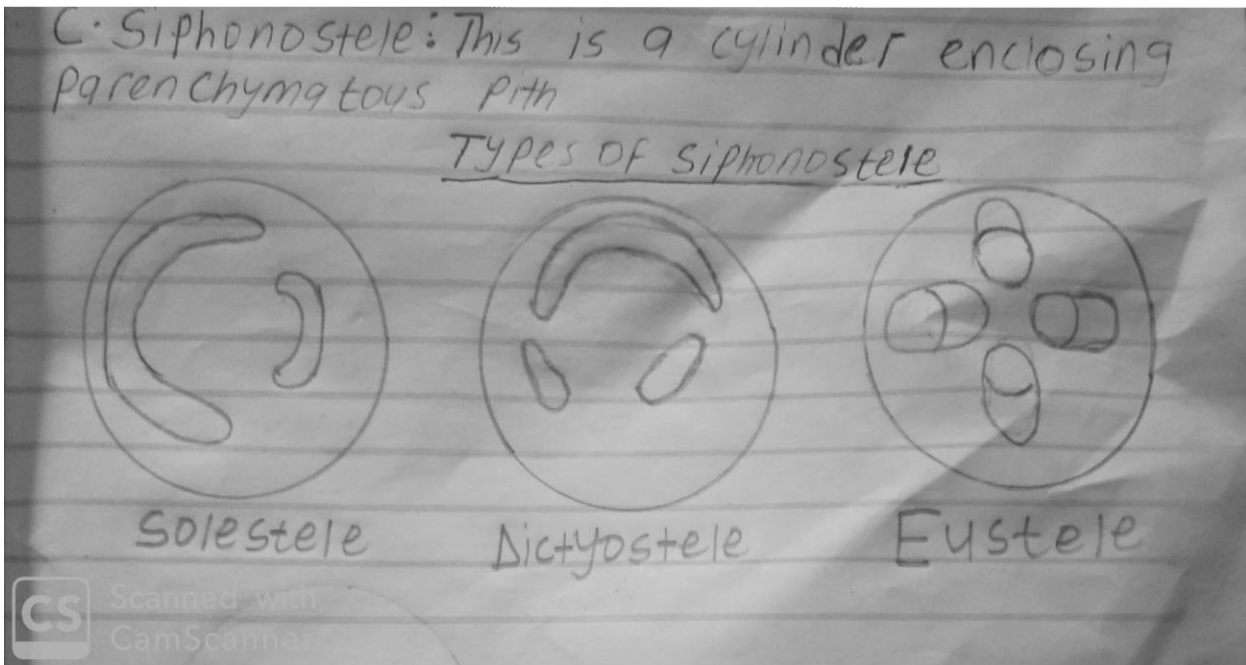 C. Siphonostele: This is a cylinder enclosing
parenchymatous pith
Types of siphonostele
Solestele Dictyostele Eustele
CS Scanned with
CamScanner